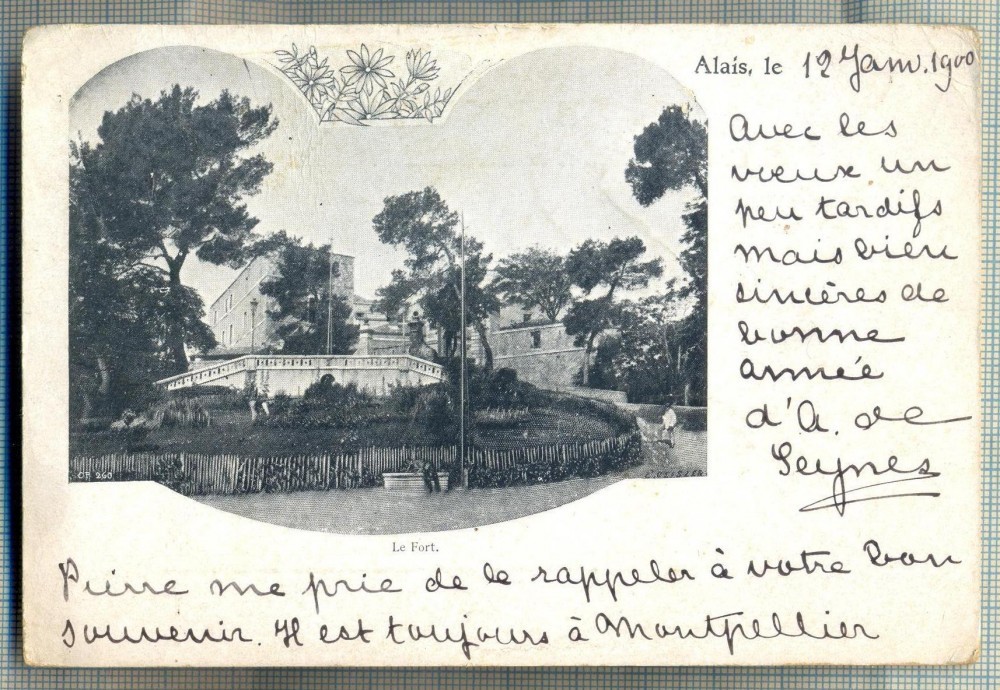 Alais, le 12 Janv. 1900
Avec les
vœux un
peu tardifs
mais bien
sincères de
bonne
année
d'A. de
Seynes
CP. 260
Le Fort.
Pierre me prie de le rappeler à votre bon
souvenir. Il est toujours à Montpellier